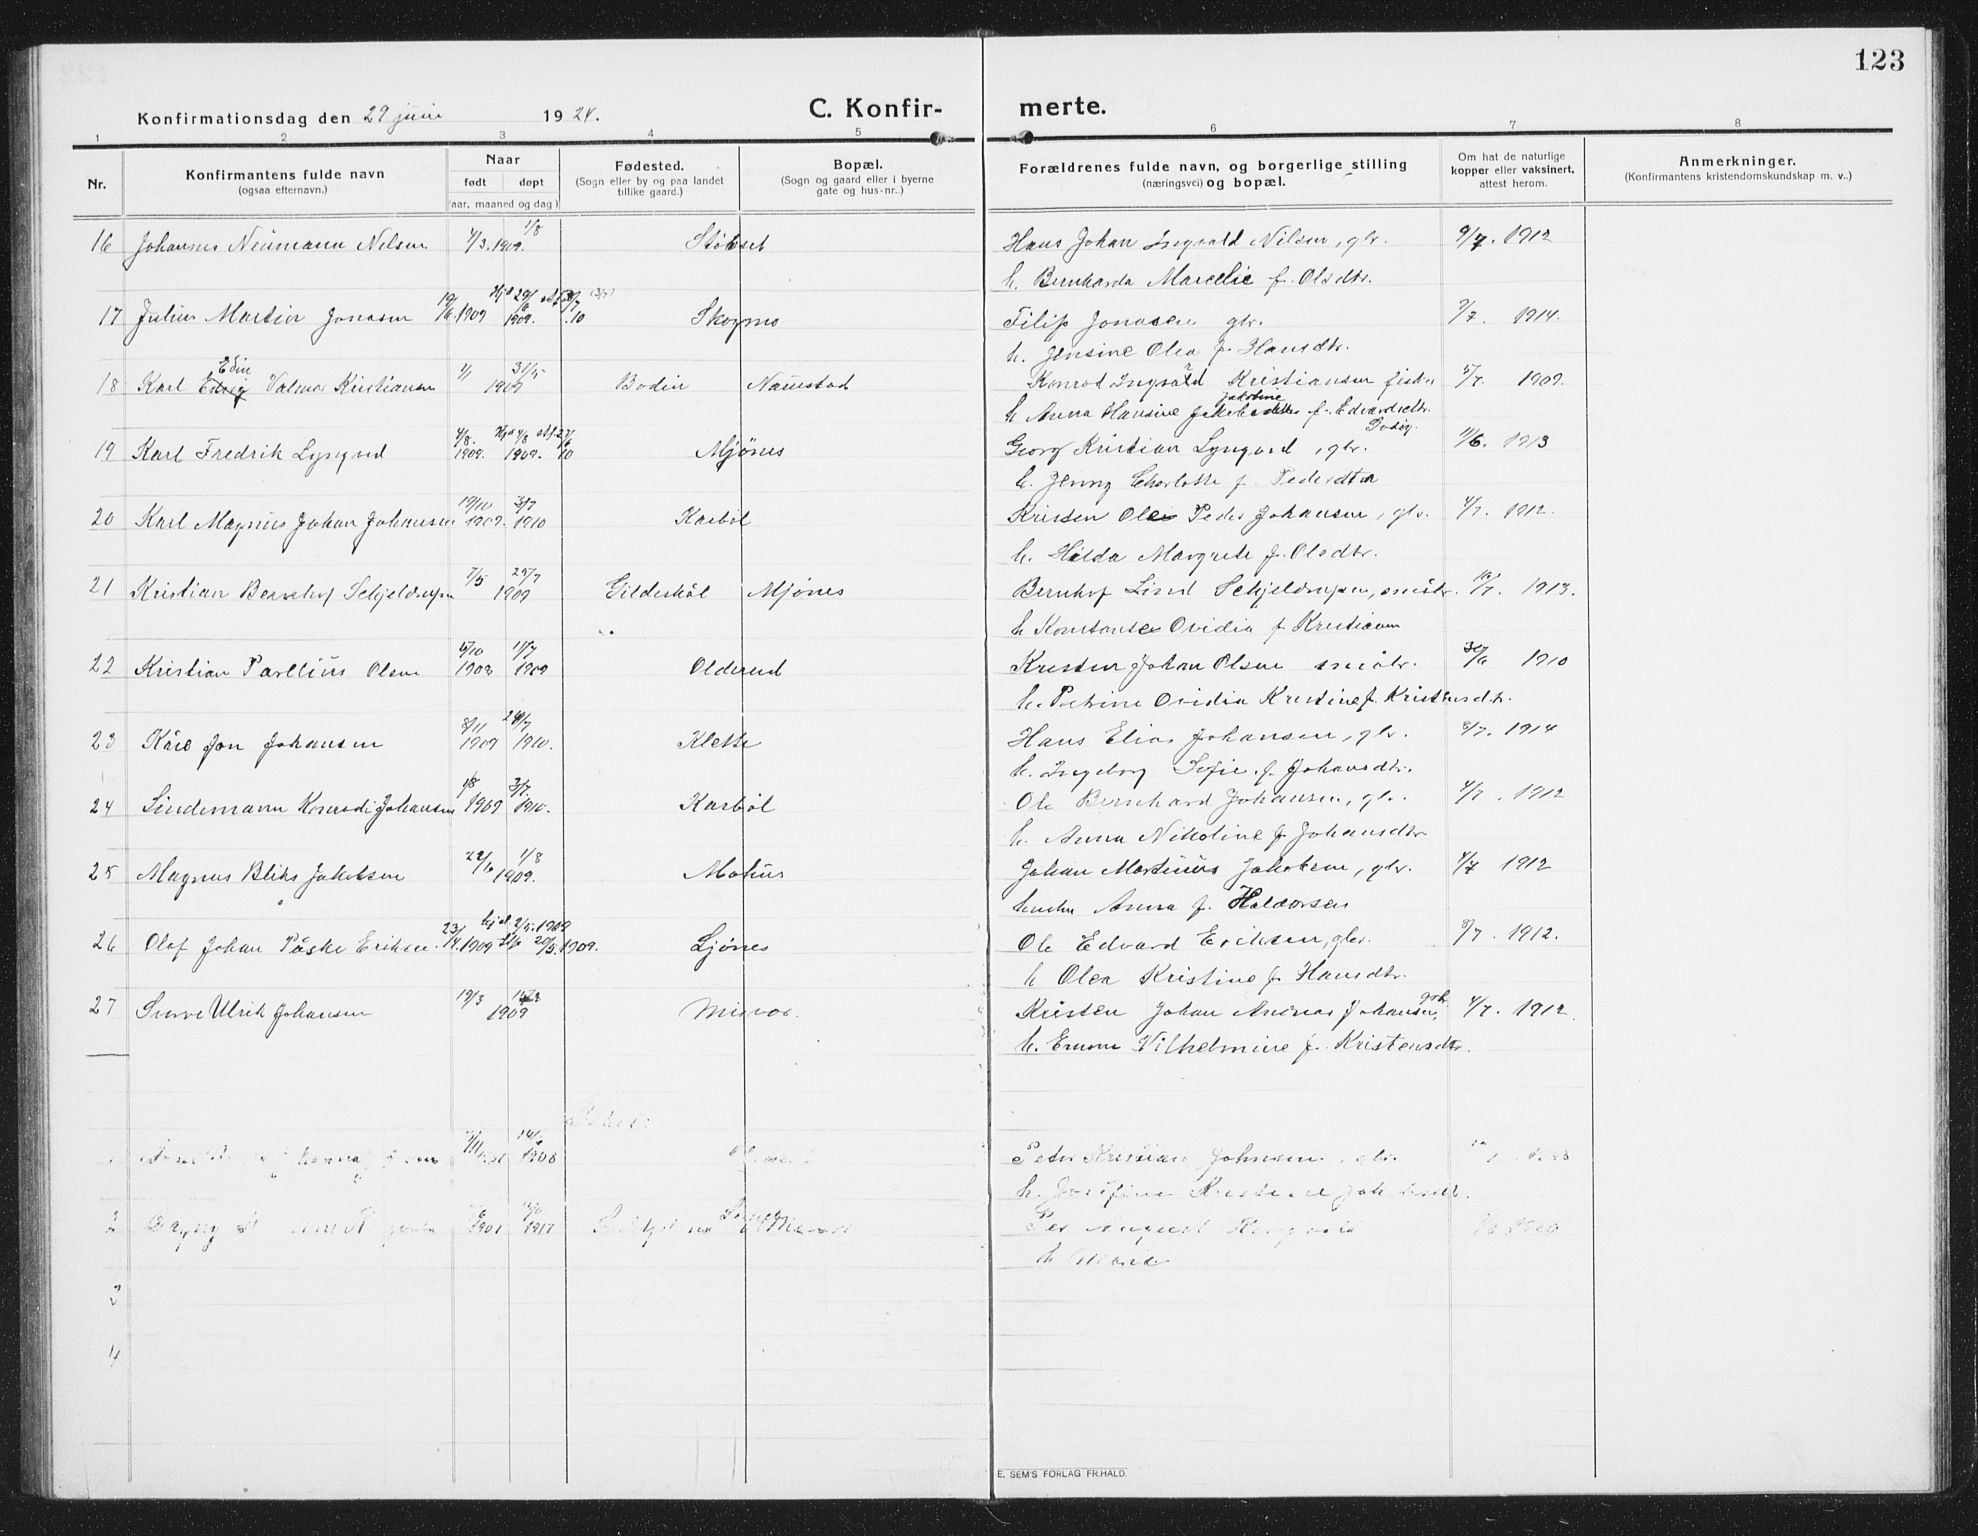 123
Konfirmationsdag den 29 juni 1924. C. Konfir- merte.
1 2 3 4 5 6 7 8
Nr. Konfirmantens fulde navn (ogsaa efternavn.) Naar født døpt (aar, maaned og dag) Fødested. (Sogn eller by og paa landet tillike gaard.) Bopæl. (Sogn og gaard eller i byerne gate og hus-nr..) Forældrenes fulde navn, og borgerlige stilling (næringsvei) og bopæl. Om hat de naturlige kopper eller vaksinert, attest herom. Anmerkninger. (Konfirmantens kristendomskundskap m. v..)
16 Johannes Neumann Nelsen 4/3. 1909. 1/8 Støbset Hans Johan Ingvald Nilsen, gbr. 9/7. 1912
h. Bernharda Marcelie f. Olsdtr.
17 Julius Martin Jonasen 19/6. 1909 1909. Skognes Filip Jonasen gbr. 2/7. 1914.
h. Jensine Olea f. Hansdtr.
18 Karl Edin Valmar Kristiansen 1/1 31/5 1909 Bodin Naustad Konrad Ingvald Kristiansen fisker 5/7. 1909.
h Anna Hansine Jakobine f. Edvardsdtr. Godøy.
19 Karl Fredrik Lyngved 4/8. 1909. 1909. Mjønes Georg Kristian Lyngved, gbr. 11/6. 1913
h. Jenny Charlotte f. Pedersdtr
20 Karl Magnus Johan Johansen 19/10 1909. 3/7 1910 Karbøl Kristen Ole Peder Johansen, gbr. 4/7. 1912.
h. Hilda Margrete f. Olsdtr.
21 Kristian Bernhof Schjeldrupsen 7/5 25/7 1909 Gildeskål Mjønes Bernhof Lind Schjeldrupsen, småbr. 10/7. 1913.
h Konstanse Ovidia f Kristiansen
22 Kristian Parelius Olsen 15/10 1908 11/7 1909 Oldereid Kristen Johan Olsen småbr. 30/6 1910
h. Petrine Ovidia Kristine f. Kristensdtr.
23 Kåre Jon Johansen 8/11 1909 24/7 1910. Klette Hans Elias Johansen, gbr. 8/7. 1914
h. Ingeborg Sofie f. Johansdtr.
24 Lindemann Konradi Johansen 1/8 1909 3/7. 1910. Karbøl Ole Bernhard Johansen, gbr. 4/7. 1912
h. Anna Nikoline f Johansdtr
25 Magnus Bliks Jakobsen 22/6 1/8 1909. Moknes Johan Martinus Jakobsen, gbr. 4/7 1912
hustru Anna f. Haldorsen
26 Olaf Johan Påske Eriksen. 23/4. 1909 2/5. 1909 20/5. 1909. Ljønes Ole Edvard Eriksen, gbr. 8/7. 1912.
h Olea Kristine f. Hansdtr.
27 Sverre Ulrik Johansen 19/3 1909 Misvær. Kristen Johan Andreas Johansen, gbr. 4/7. 1912.
h. Emma Vilhelmine f. Kristensdtr.
1908 Peter Kristian Johnsen, gbr.
h. Josefine
2 Dagny 1901 1917 Misvær Per August
h Marie
3
4
E. SEM'S FORLAG FR.HALD.